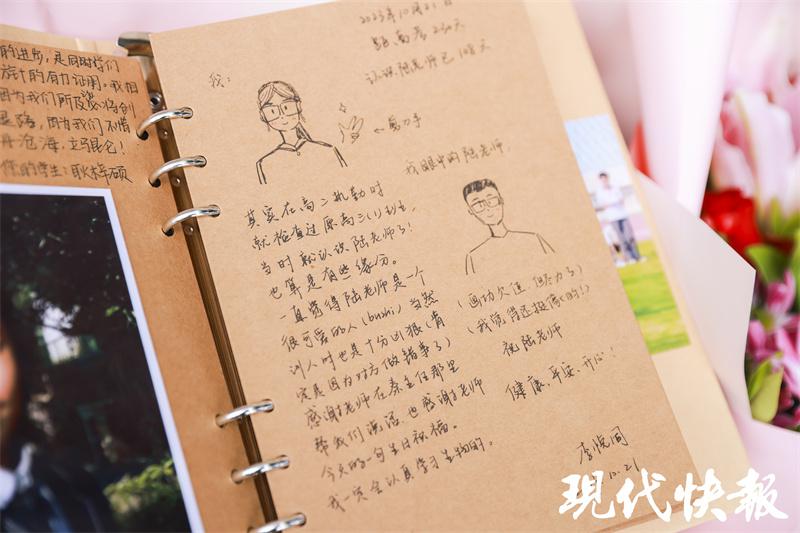 的进步，是同时将们
旅计的有力证明。我相
因为我们所及将创
星路，因为我们不惜
丹沧海，立马昆仑！
你的学生：耿梓硕
2023年10月21日
距高考230天
认识陆老师已108天
我：
←剪刀手
我眼中的陆老师，
其实在高二执勤时
就检查过原高三(1)班
当时就认识陆老师了！
也算是有些缘分。
一直觉得陆老师是一个
很可爱的人(bushi)当然
训人时也是十分凶狠(肯
定是因为对方做错事了)
感谢老师在秦主任那里
帮我们说话，也感谢老师
今天的一句生日祝福。
我一定会认真学习生物的。
(画功欠佳 但尽力了)
(我觉得还挺像的！)
祝陆老师
健康、平安、开心！
李悦同
10.21
现代快报